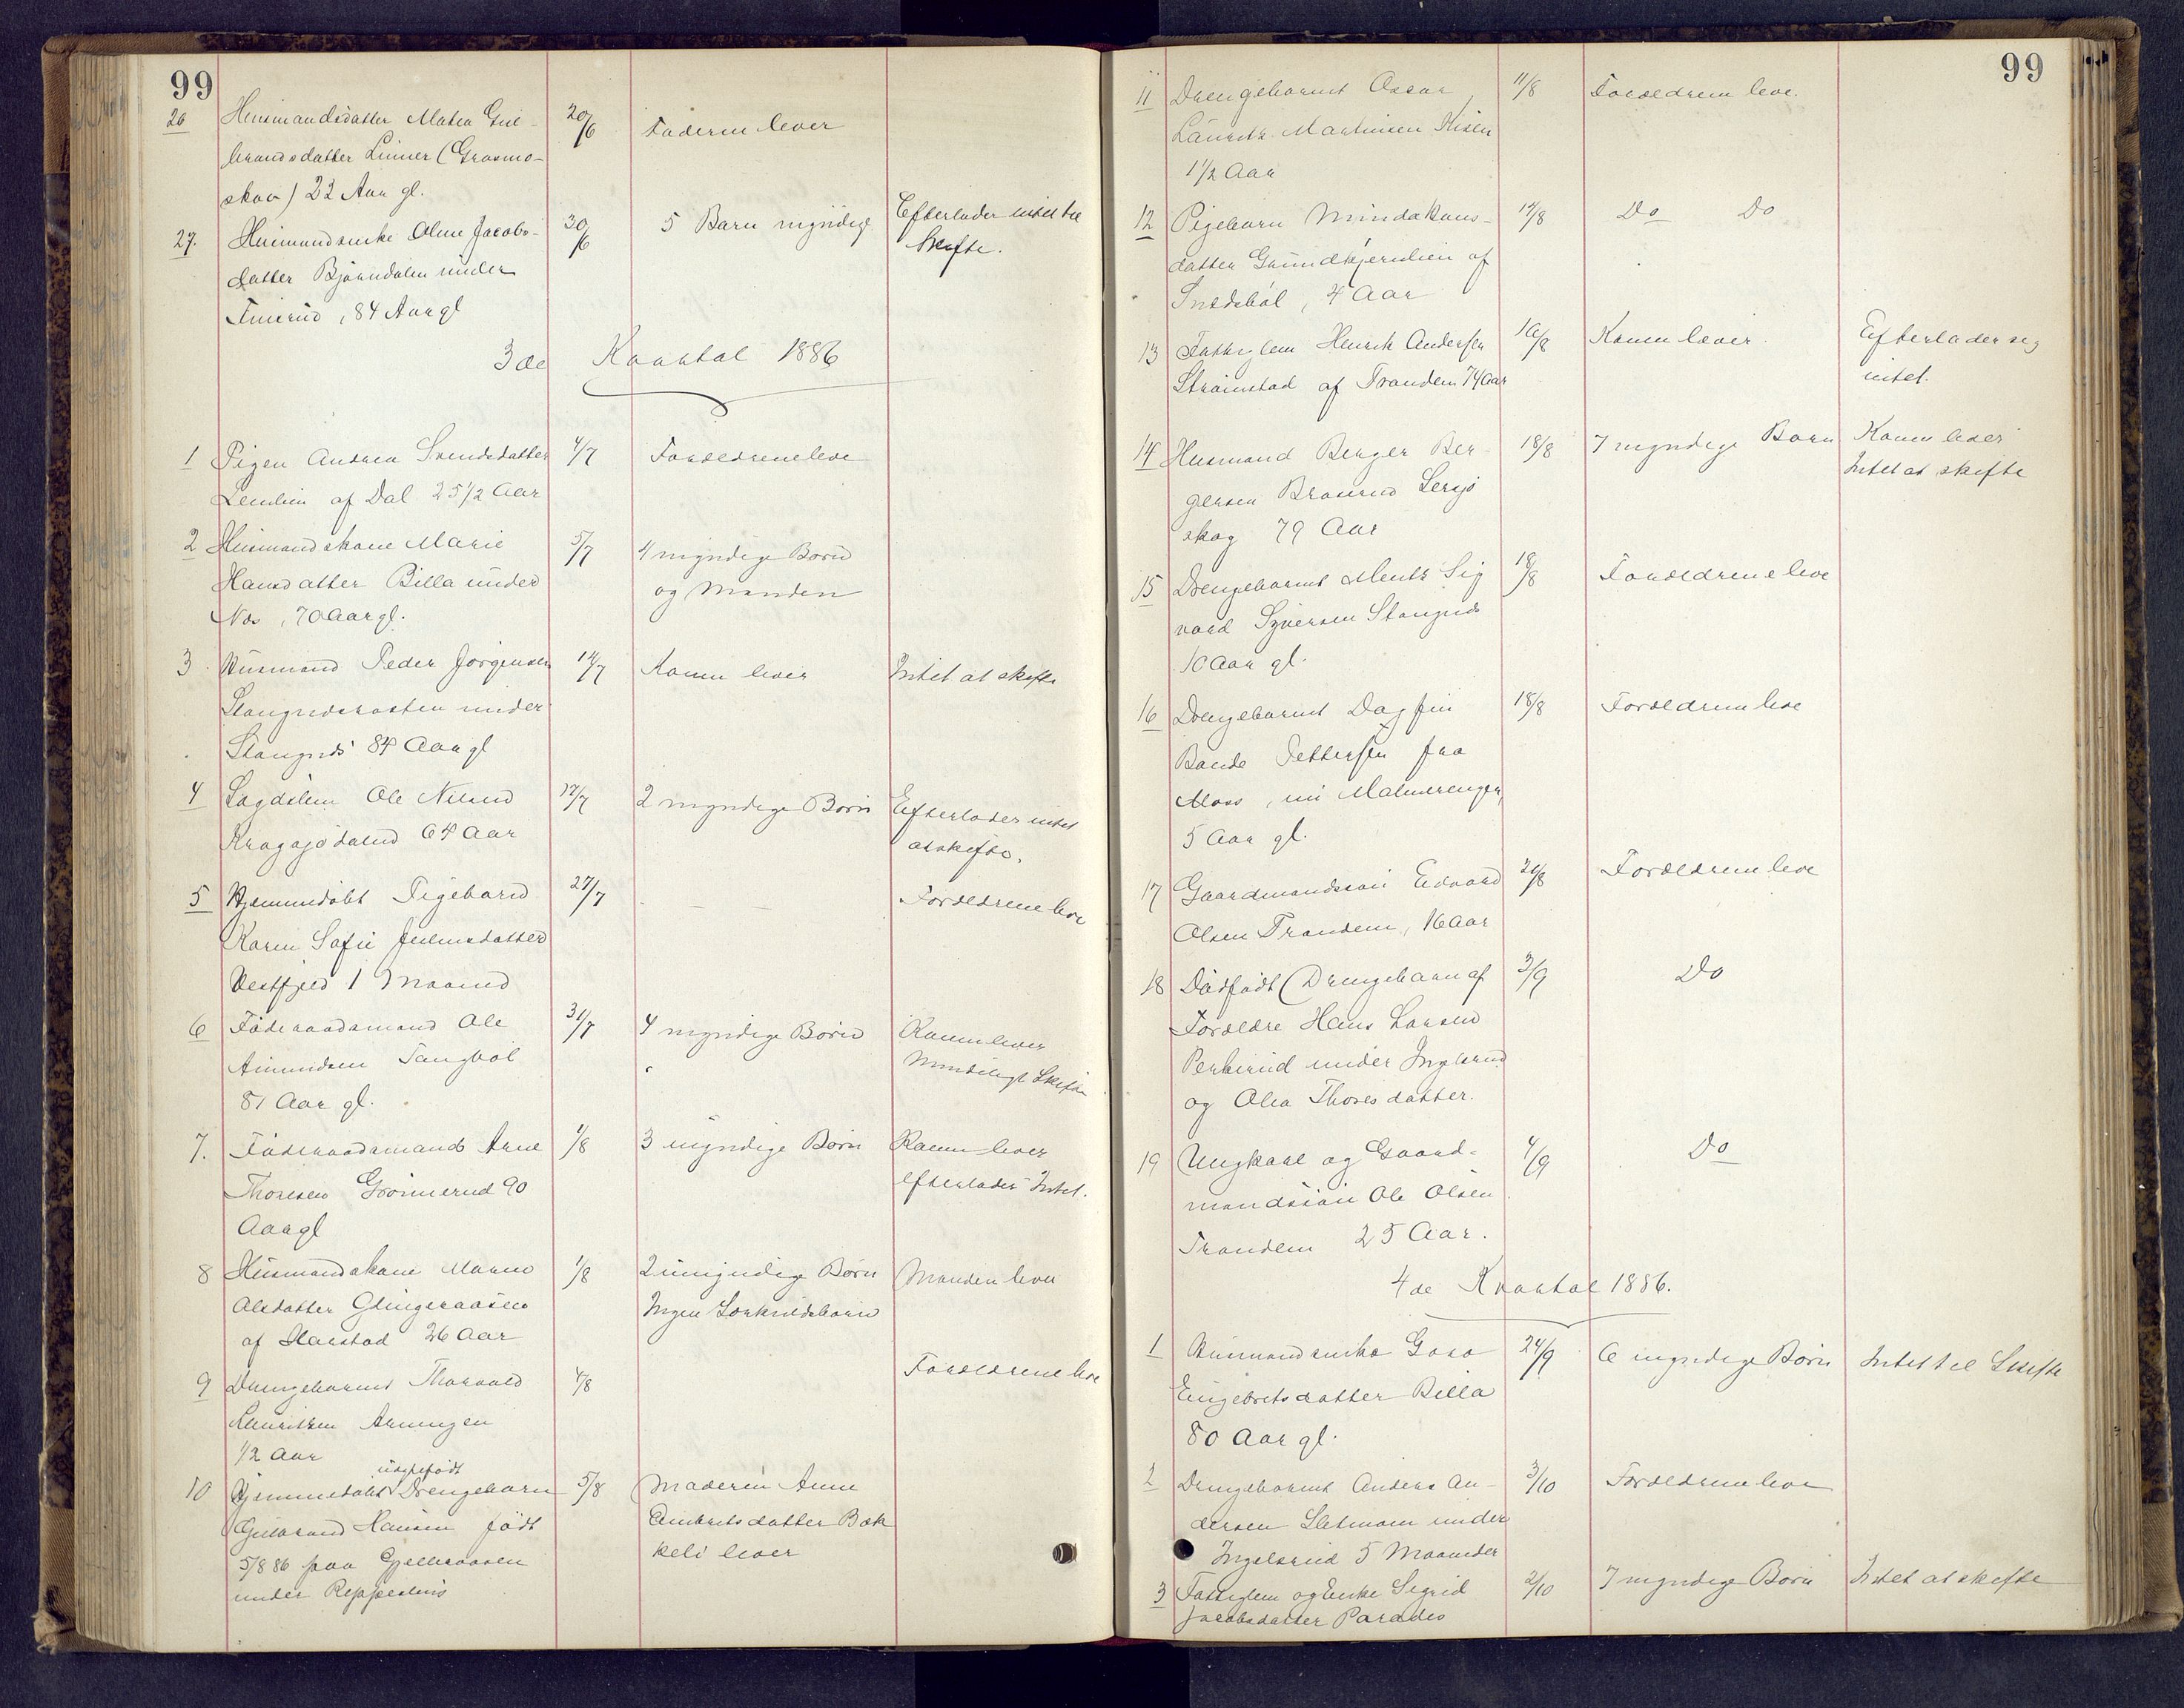 99
26 Husmandsdatter Matea Gul- 20/6 Faderen lever
brandsdatter Linner (Grasmo-
skov) 22 Aar gl.
27. Husmandsenke Oline Jacobs- 30/6 5 Barn myndige Efterlader intet til
datter Bjørndalen under Skifte.
84 Aar gl
3de Kvartal 1886
1 Pigen Andrea Svendsdatter 4/7 Forældrene leve
af Dal 25 1/2 Aar
2 Husmandskone Marie 5/7 4 myndige Børn
Hansdatter Billa under og Manden
Næs, 70 Aar gl.
3 Husmand Peder Jørgensen 14/7 Konen lever Intet at skifte
under
Stangnæs 84 Aar gl
4 Lægdslem Ole Nilsen 17/7 2 myndige Børn Efterlader intet
64 Aar at skifte.
5 Hjemmedøbt Pigebarn 27/7 — — Forældrene leve
Karen Sofie Julinsdatter
Vestfjeld 1 Maaned
6 Føderaadsmand Ole 31/7 4 myndige Børn Konen lever
Amundsen Tangbøl Mindeligt Skifte
81 Aar gl.
7. Føderaadsmand Arne 1/8 3 myndige Børn Konen lever
Thoresen Grønnerud 90 efterlader Intet.
Aar gl
8 Husmandskone Maren 1/8 2 umyndige Børn Manden lever
Olsdatter Glingeraasen Ingen Særkuldsbørn
af Harstad 26 Aar
9 Drengebarnet Thorvald 4/8 Forældrene leve
Lauritzen Aamungen
1/2 Aar
uægtefødt
10 Hjemmedøbt Drengebarn 5/8 Moderen Anne
Gulbrand Hansen født Embretsdatter Bæk
5/8 86 paa Gjelleraasen keli lever
under Reppestins
99
11 Drengebarnet Oscar 11/8 Forældrene leve.
Lauritz Martinsen Risen
1 1/2 Aar
12 Pigebarn Minda Hans- 14/8 Do Do
datter Grundtjernlien af
4 Aar
13 Fattiglem Henrik Andersen 16/8 Konen lever Efterlader sig
Strømstad af Trandem 74 Aar intet.
14 Husmand Berger Ber- 18/8 7 myndige Børn Konen lever
gersen Braserud Sersjø Intet at skifte
skog 79 Aar
15 Drengebarnet Mentz Sig 18/8 Forældrene leve
vard Syversen Stangnæs
10 Aar gl.
16 Drengebarnet Dagfin 18/8 Forældrene leve
Bande Pettersen fra
Moss, nu Malmerengen,
5 Aar gl.
17 Gaardmandssøn Edvard 26/8 Forældrene leve
Olsen Trandem, 16 Aar
18 Dødfødt Drengebarn af 3/9 Do
Forældre Hans Larsen
Perkerud under Ingelsrud
og Olea Thoresdatter.
19 Ungkarl og Gaard- 4/9 Do
mandssøn Ole Olsen
Trandem 25 Aar.
4de Kvartal 1886.
1 Husmandsenke Goro 24/9 6 myndige Børn Intet til Skifte
Engebretsdatter Billa
80 Aar gl.
2 Drengebarnet Anders An- 3/10 Forældrene leve
dersen Sletmoen under
Ingelsrud 5 Maaneder
3 Fattiglem og Enke Sigrid 2/10 7 myndige Børn Intet at skifte
Jacobsdatter Paradis